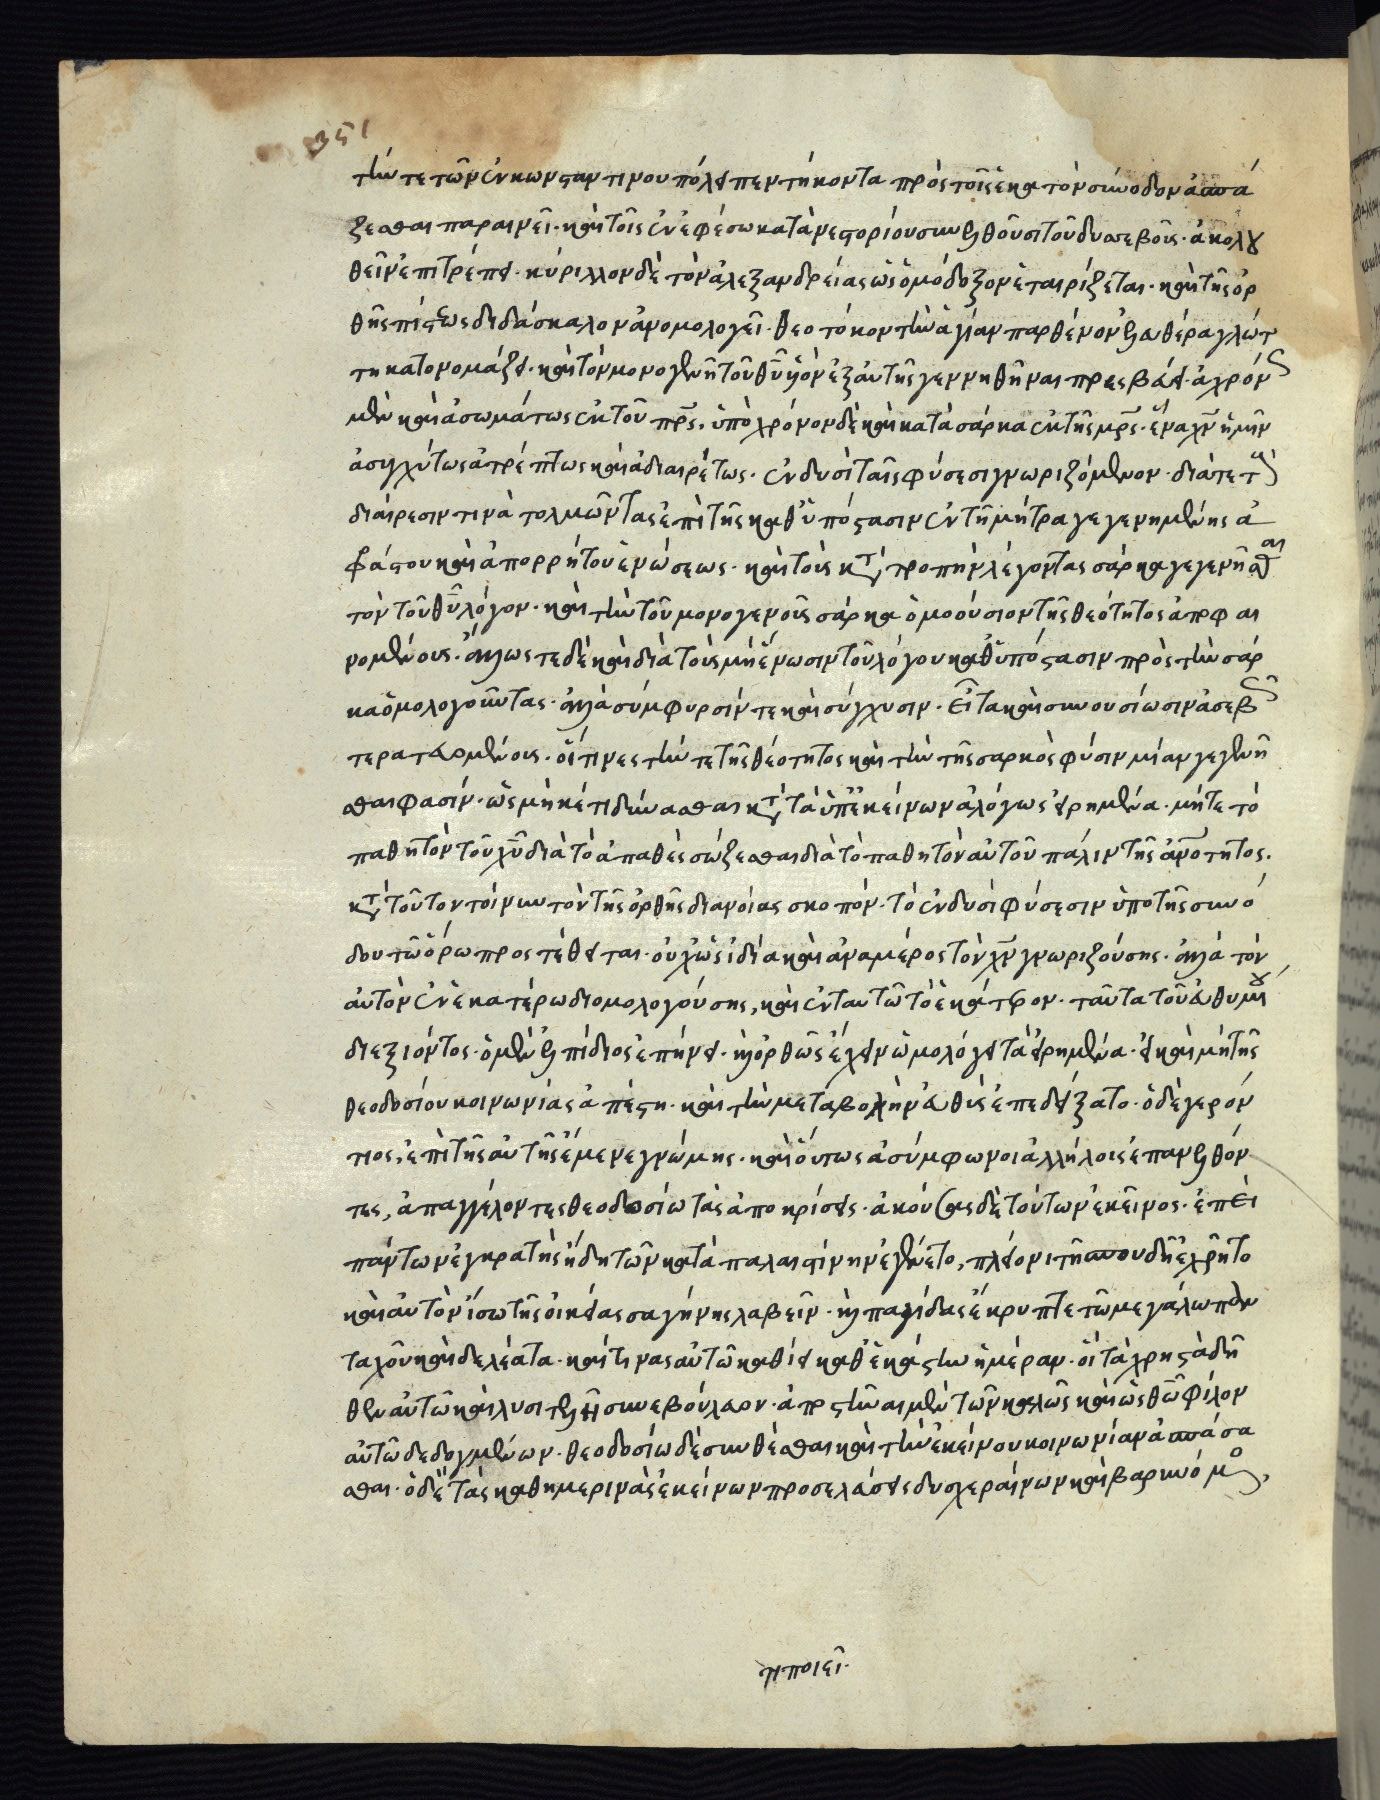 351
τήν τε τῶν ἐν κωνσταντινουπόλει πεντήκοντα πρὸς τοῖς ἑκατὸν σύνοδον ἀσπά
ζεσθαι παραινεῖ· καὶ τοῖς ἐν ἐφέσω κατὰ νεστορίου συνελθοῦσι τοῦ δυσσεβοῦς· ἀκολου
θεῖν ἐπιτρέπει· κύριλλον δὲ τὸν ἀλεξανδρείας ὡς ὁμόδοξον ἑταιρίζεται· καὶ τῆς ὀρ
θῆς πίστεως διδάσκαλον ἀνομολογεῖ· θεοτόκον τὴν ἁγίαν παρθένον ἐλευθέρα γλώτ
τη κατονομάζει· καὶ τὸν μονογενῆ τοῦ θῦ υἱὸν ἐξ αὐτῆς γεννηθῆναι πρεσβεύει· ἀχρόνως
μὲν καὶ ἀσωμάτως ἐκ τοῦ πρς, ὑπὸ χρόνον δὲ καὶ κατὰ σάρκα ἐκ τῆς μρς· ἕνα χν ἡμῖν
ἀσυγχύτως ἀτρέπτως καὶ ἀδιαιρέτως· ἐν δυσὶ ταῖς φύσεσι γνωριζόμενον· διά τε τοὺς
διαίρεσίν τινα τολμῶντας ἐπὶ τῆς καθ' ὑπόστασιν ἐν τῇ μήτρα γεγενημένης ἀ
φράστου καὶ ἀπορρήτου ἑνώσεως· καὶ τοὺς κατὰ τροπὴν λέγοντας σάρκα γεγενῆσθαι
τὸν τοῦ θῦ λόγον· καὶ τὴν τοῦ μονογενοῦς σάρκα ὁμοούσιον τῆς θεότητος ἀποφαι
νομένους· ἄλλως τε δὲ καὶ διὰ τοὺς μὴ ἕνωσιν τοῦ λόγου καθ' ὑπόστασιν πρὸς τὴν σάρ
κα ὁμολογοῦντας· ἀλλὰ σύμφυρσίν τε καὶ σύγχυσιν· εἶτα καὶ συνουσίωσιν ἀσεβῶς
τερατευομένους· οἵτινες τήν τε τῆς θεότητος καὶ τὴν τῆς σαρκὸς φύσιν μίαν γεγενῆ
σθαι φασίν· ὡς μηκέτι δύνασθαι κατὰ τὰ ὑπ' ἐκείνων ἀλόγως εἰρημένα· μήτε τὸ
παθητὸν τοῦ χῦ διὰ τὸ ἀπαθὲς σώζεσθαι διὰ τὸ παθητὸν αὐτοῦ πάλιν τῆς ἀνότητος·
κατὰ τοῦτον τοίνυν τὸν τῆς ὀρθῆς διανοίας σκοπόν· τὸ ἐν δυσὶ φύσεσιν ὑπὸ τῆς συνό
δου τῶ ὅρω προστέθειται· οὐχ ὡς ἰδία καὶ ἀναμέρος τὸν χν γνωριζούσης· ἀλλὰ τὸν
αὐτὸν ἐν ἑκατέρω διομολογούσης, καὶ ἐν ταυτῶ τὸ ἑκάτερον· ταῦτα τοῦ εὐθυμίου
διεξιόντος· ὁ μὲν ἐλπίδιος ἐπήνει· καὶ ὀρθῶς ἔχειν ὡμολόγει τὰ εἰρημένα· εἰ καὶ μὴ τῆς
θεοδοσίου κοινωνίας ἀπέστη· καὶ τὴν μεταβολὴν εὐθὺς ἐπεδείξατο· ὁ δὲ γερόν
τιος, ἐπὶ τῆς αὐτῆς ἔμενε γνώμης· καὶ οὕτως ἀσύμφωνοι ἀλλήλοις ἐπανελθόν
τες, ἀπαγγέλοντες θεοδοσίω τὰς ἀποκρίσεις· ἀκούσας δὲ τούτων ἐκεῖνος· ἐπεὶ
πάντων ἐγκρατὴς ἤδη τῶν κατὰ παλαιστίνην ἐγένετο, πλείονι τῇ σπουδῇ ἐχρῆτο
καὶ αὐτὸν εἴσω τῆς οἰκείας σαγήνης λαβεῖν· καὶ παγίδας ἔκρυπτε τῶ μεγάλω παν
ταχοῦ καὶ δελέατα· καί τινας αὐτῶ καθίει καθ' ἑκάστην ἡμέραν· οἳ τὰ χρηστὰ δῆ
θεν αὐτῶ καὶ λυσιτελῆ συνεβούλευον· ἀποστῆναι μὲν τῶν καλῶς καὶ ὡς θῶ φίλον
αὐτῶ δεδογμένων· θεοδοσίω δὲ συνθέσθαι καὶ τὴν ἐκείνου κοινωνίαν ἀσπάσα
σθαι· ὁ δὲ τὰς καθημερινὰς ἐκείνων προσελάσεις δυσχεραίνων καὶ βαρυνόμενος,
τι ποιεῖ·